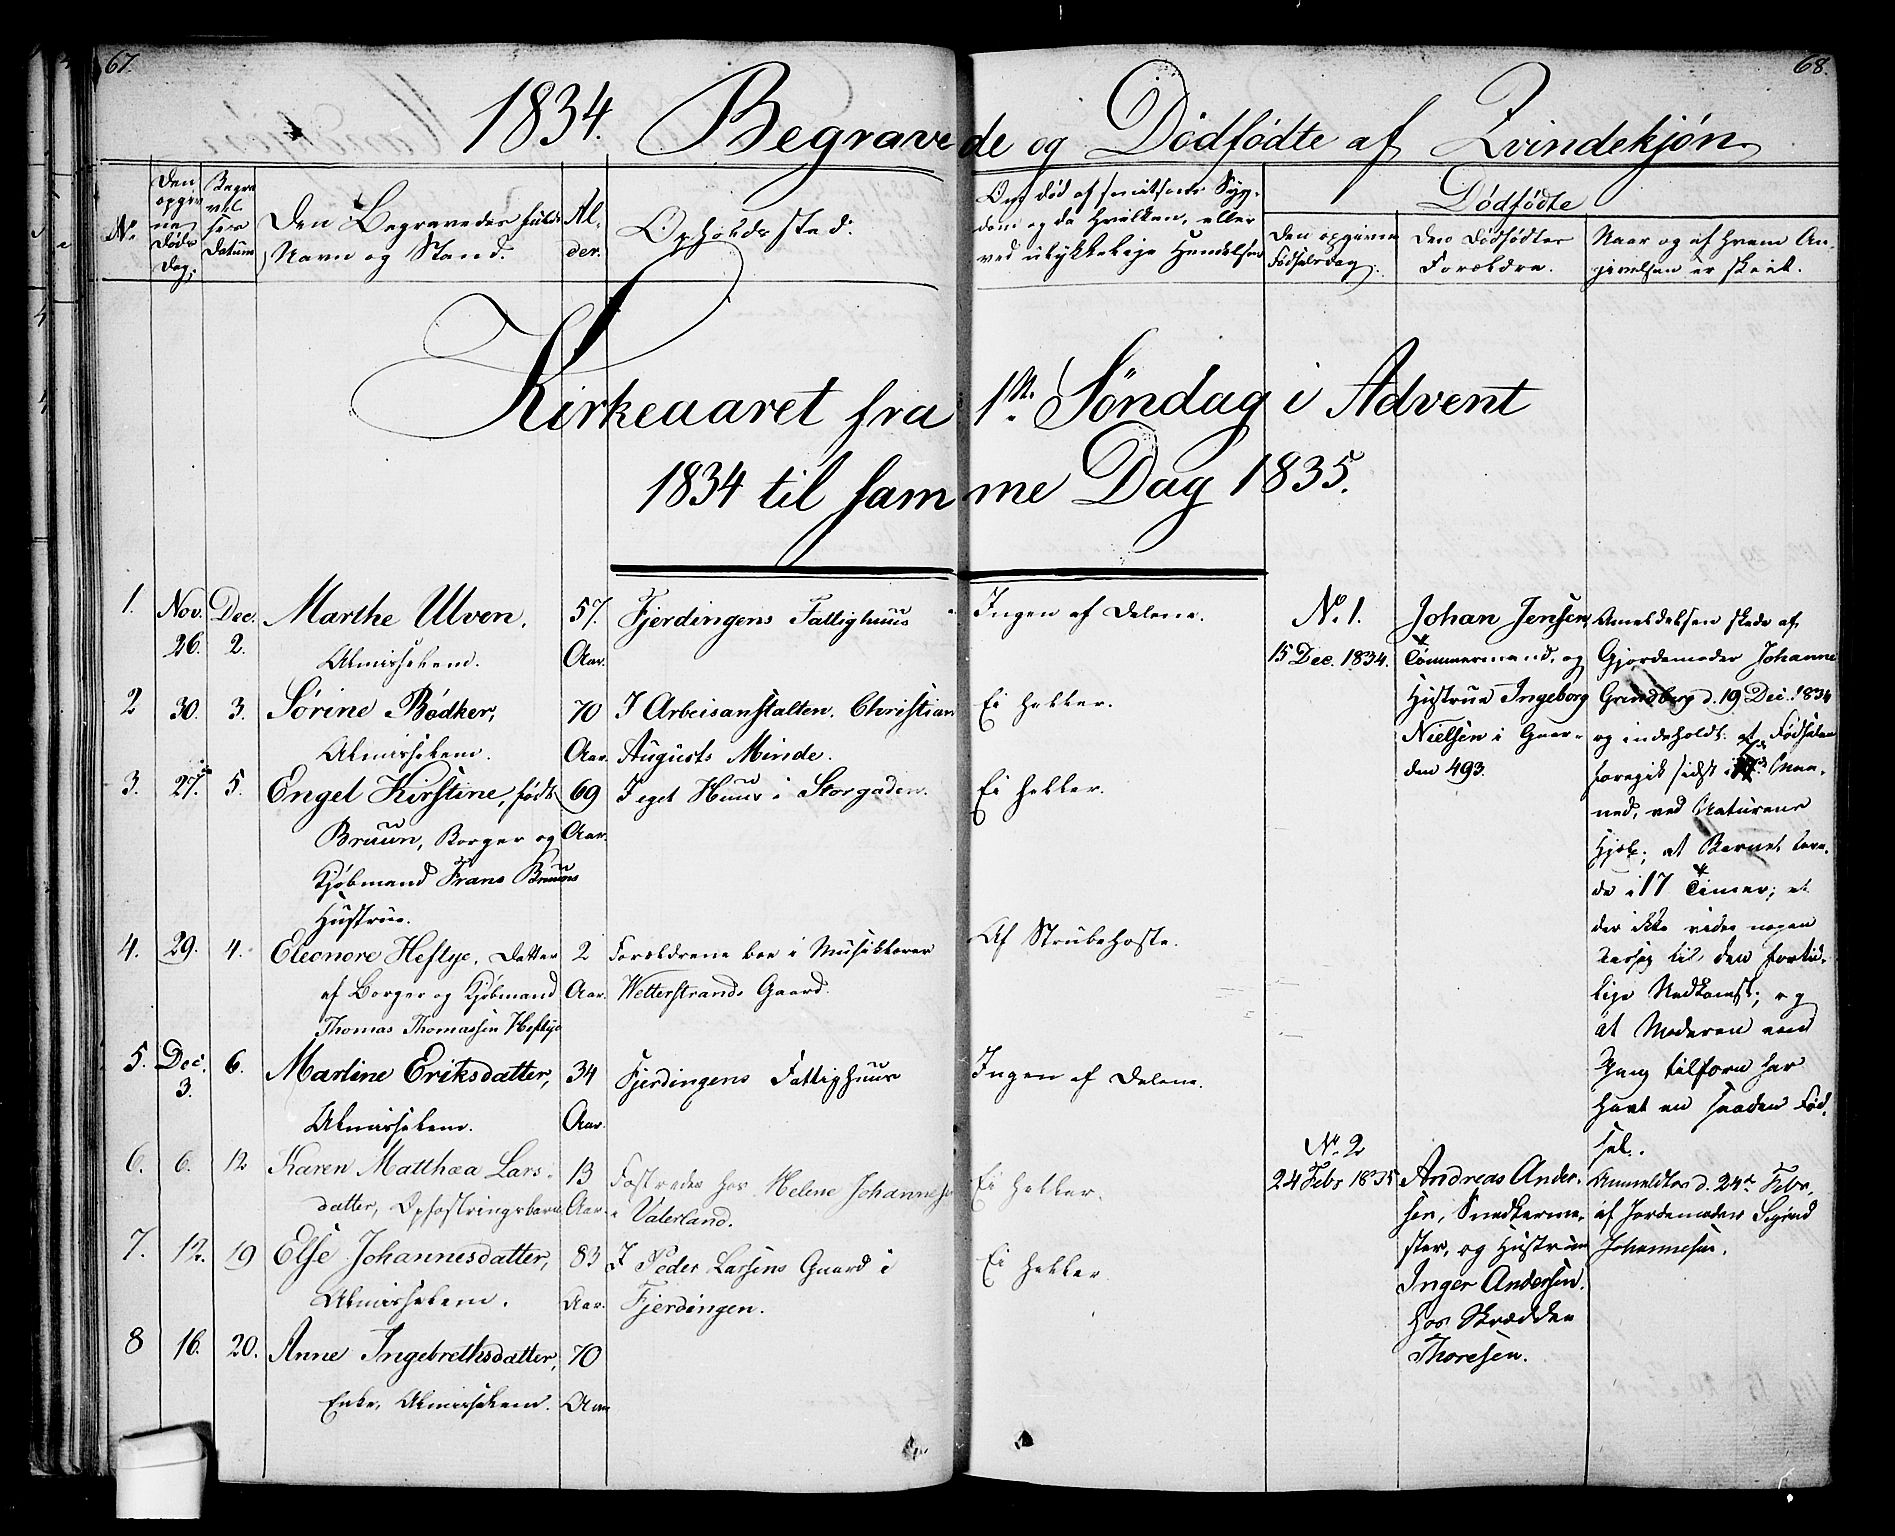 67.
68.
1834. Begravede og Dödfödte af Qvindekjön.
No.
Den opgivne Døds Dag.
Begravelsens Datum
Den Begravedes fulde Navn og Stand.
Alder.
Opholdssted.
Om død af smitsom Sygdom og da hvilken, eller ved ulykkelige Hændelser
Dödfödte
Den opgivne Fødselsdag.
Den Dødfødtes Forældre.
Naar og af hvem Angivelsen er skeet.
Kirkeaaret fra 1ste Söndag i Advent
1834 til samme Dag 1835.
1. Nov. 26. Dec. 2. Marthe Ulven, 57. Fjerdingens Fattighuus Ingen af Delene.
Almisselem. Aar.
2 30. 3. Sörine Bödker, 70 I Arbeisanstalten. Christian Ei heller.
Almisselem. Aar. Augusts Minde.
3. 27. 5. Engel Kirstine, født 69 I eget Huus i Storgaden. Ei heller.
Bruun, Borger og Aar.
Kjøbmand Frans Bruuns
Hustrue.
4. 29. 4. Eleonore Heftye, Datter 2 Forældrene boe i Musikkorer Af Strubehoste.
af Borger og Kjøbmand Aar. Wetterstrands Gaard.
Thomas Thomassen Heftye
5. Dec. 3. 6. Martine Eriksdatter, 34 Fjerdingens Fattighuus Ingen af Delene.
Almisselem. Aar.
6. 6. 12 Karen Matthæa Lars- 13 Fostredes hos Helene Johannesen Ei heller.
datter, Opfostringsbarn Aar. i Vaterland.
7. 12. 19 Else Johannesdatter, 83 I Peder Larsens Gaard i Ei heller.
Almisselem. Aar. Fjerdingen.
8 16. 20. Anne Ingebrethsdatter, 70
Enke, Almisselem. Aar
No. 1.
15 Dec. 1834.
Johan Jensen,
Tømmermand, og
Hustrue Ingeborg
Nielsen i Gaar-
den 493.
Anmeldelsen skede af
Gjordemoder Johanne
Grindberg d. 19 Dec. 1834
og indeholdt: at Fødselen
foregik sidst i 7de Maa-
ned, ved Naturens
Hjælp; at Barnet leve-
de i 17 Timer; at
der ikke vides nogen
Aarsag til den fortid-
lige Nedkomst; og
at Moderen een
Gang tilforn har
havt en saadan Fød-
sel.
No. 2
24 Febr 1835
Andreas Ander-
sen, Snedkerme-
ster, og Hustrue
Inger Andersen.
hos Skrædder
Thoresen.
Anmeldtes d. 24de Febr.
af Jordemoder Sigrid
Johannesen.